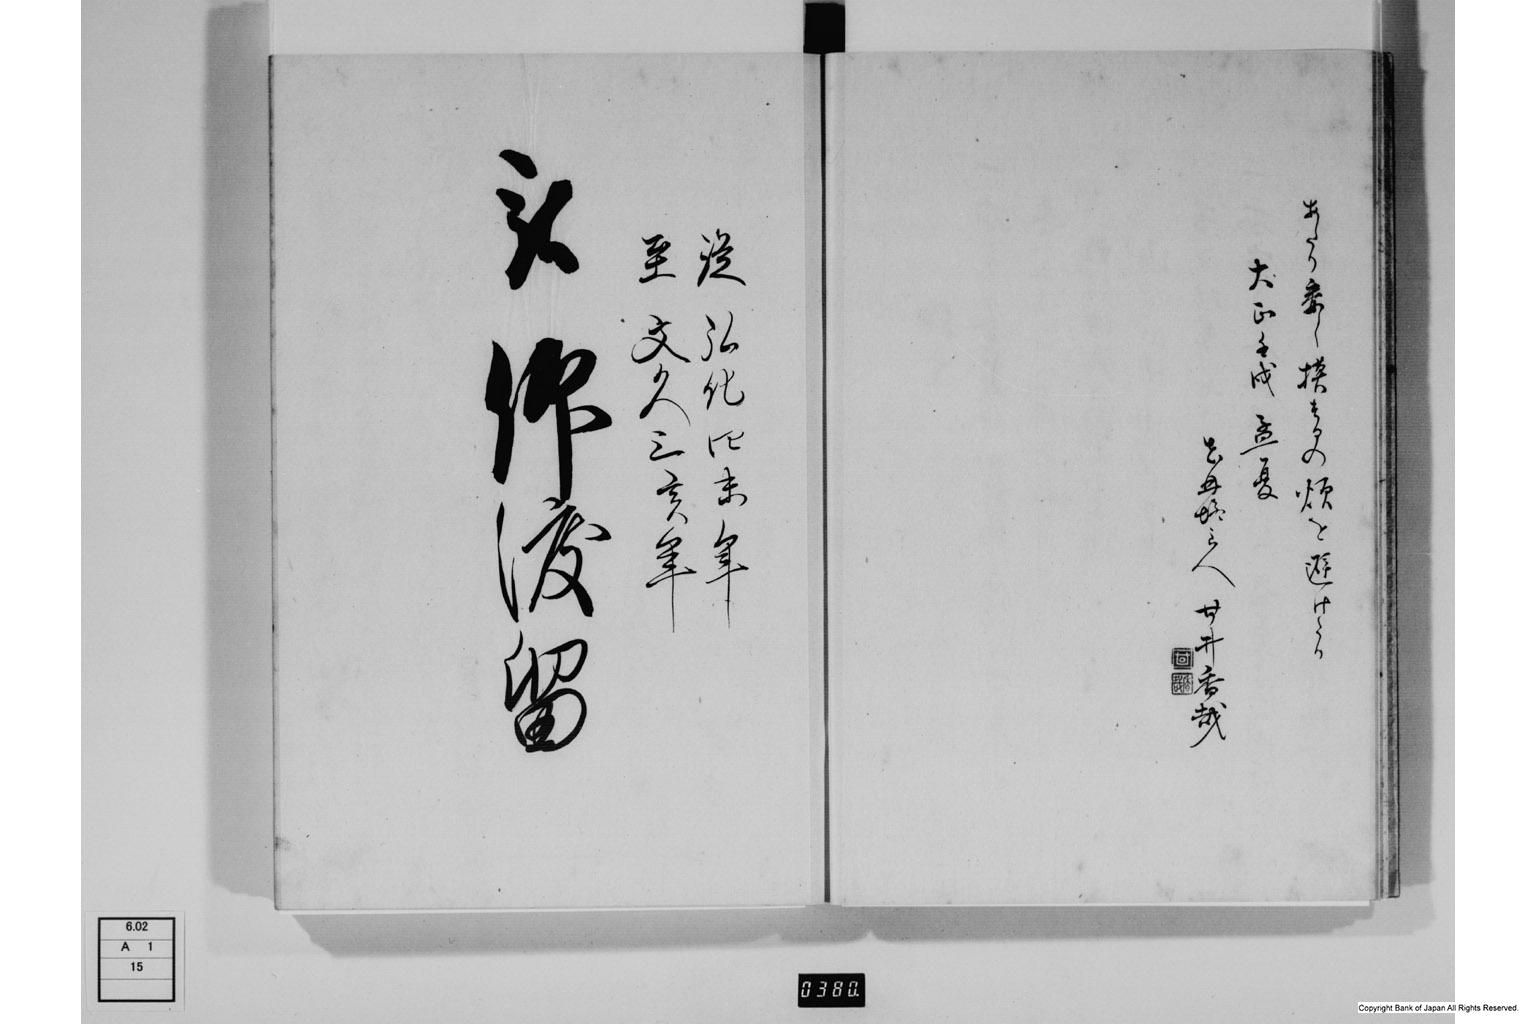 あたり委しく模するの煩を避けたり
大正壬戌 孟夏
甘井香哉
従 弘化四未年
至 文久三亥年
被仰渡留
6.02
A 1
15
0380
Copyright Bank of Japan All Rights Reserved.